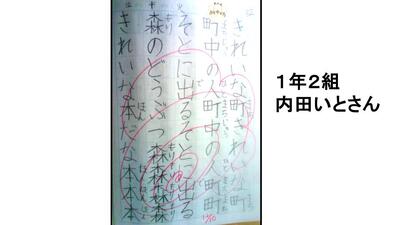 きれいな町きれいな町
町中の人町中の人町町
そとに出るそとに出る
森のどうぶつ森森森森
きれいな本だな本本本
１年２組
内田いとさん